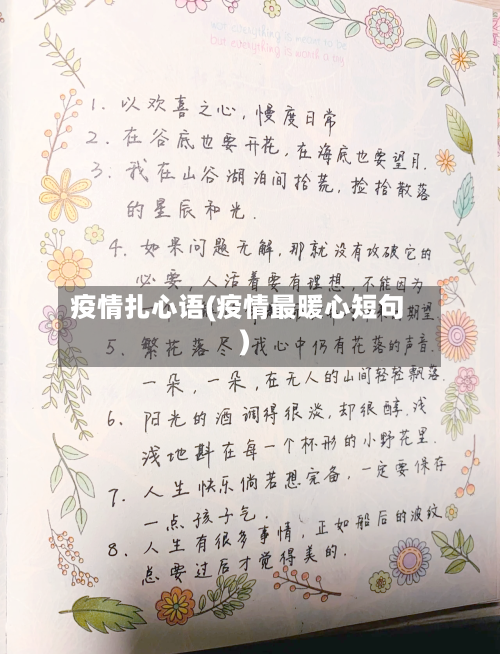 not everything is meant to be
but everything is worth a try
1. 以欢喜之心，慢度日常
2. 在谷底也要开花，在海底也要望月.
3. 我在山谷湖泊间拾荒，捡拾散落
的星辰和光.
4. 如果问题无解，那就没有攻破它的
必要，人活着要有理想，不能因为
期望.
疫情扎心语(疫情最暖心短句
)
5. 繁花落尽，我心中仍有花落的声音.
一朵，一朵，在无人的山间轻轻飘落.
6. 阳光的酒调得很淡，却很醇，浅
浅地斟在每一个杯形的小野花里.
7. 人生快乐倘若想完备，一定要保存
一点孩子气.
8. 人生有很多事情，正如船后的波纹，
总要过后才觉得美的.